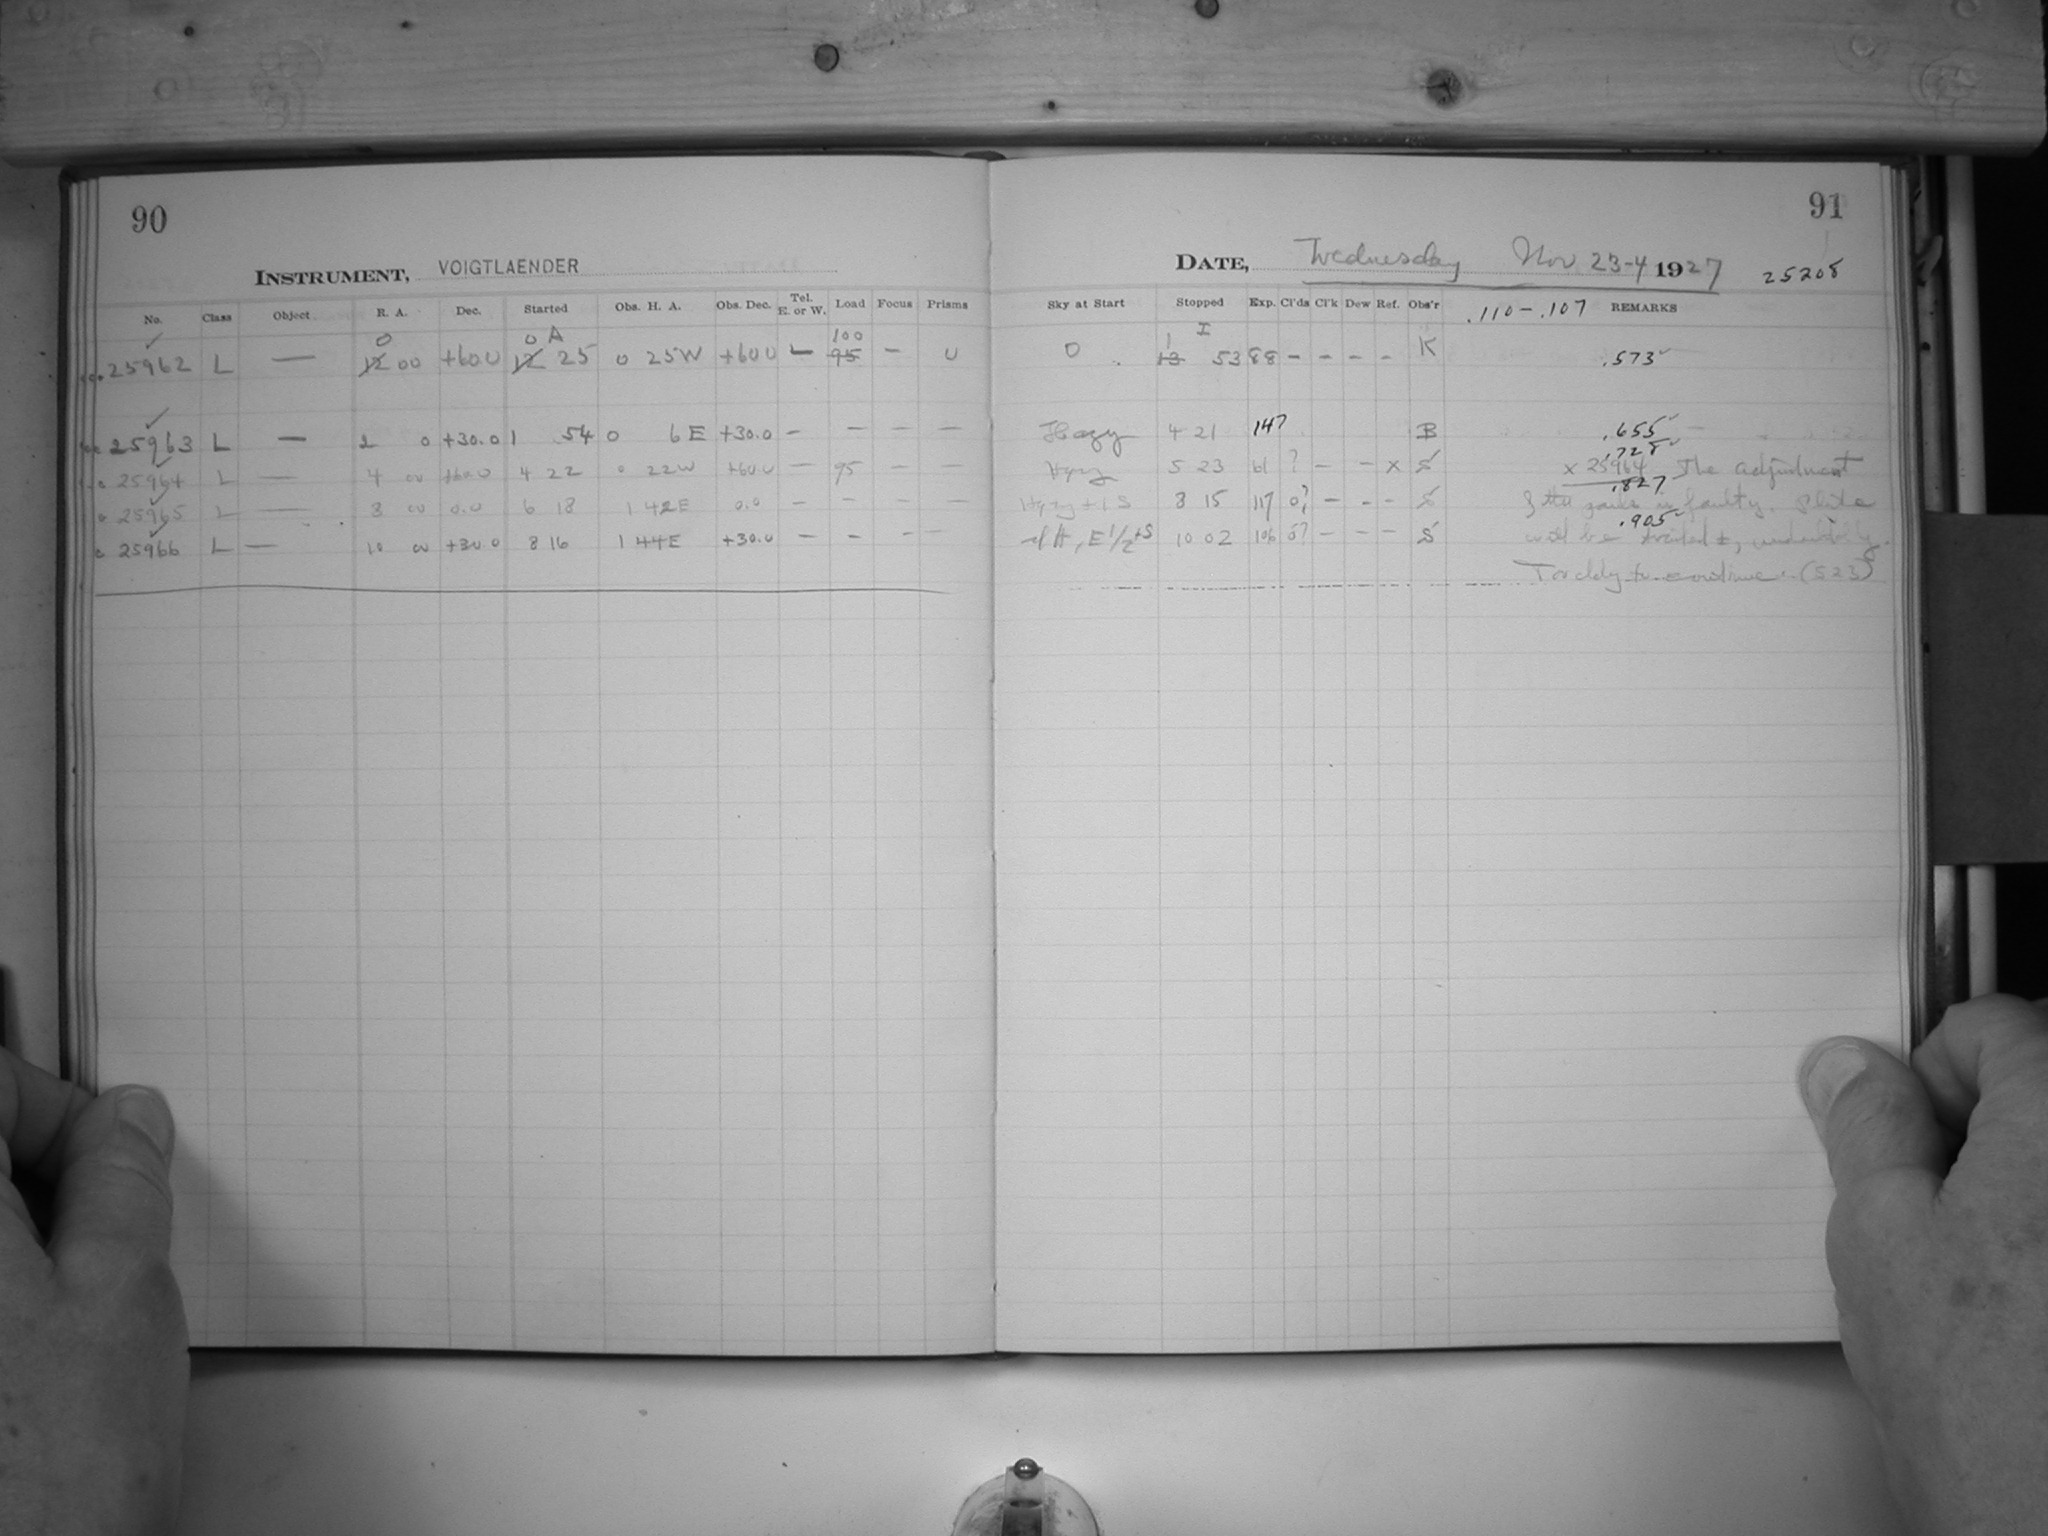 90
INSTRUMENT, VOIGTLAENDER
No. Class Object R. A. Dec. Started Obs. H. A. Obs. Dec. Tel. E. or W. Load Focus Prisms
0 0 A 100
25962 L — 12 00 +60.0 12 25 0 25W +60.0 — 95 — 0
25963 L — 2 0 +30.0 1 54 0 6E +30.0 — — — —
25964 L — 4 00 +60.0 4 22 0 22W +60.0 — 95 — —
25965 L — 8 00 0.0 6 18 1 42E 0.0 — — — —
25966 L — 10 00 +30.0 8 16 1 44E +30.0 — — — —
91
DATE, Wednesday Nov 23-4 1927 25208
Sky at Start Stopped Exp. Cl'ds Cl'k Dew Ref. Obs'r .110 - .107 REMARKS
1 I
0 13 53 88 — — — — K .573
Hazy 4 21 147 B .655
.728
Hazy 5 23 61 ? — — x S x 25964 The adjustment
.827
Hazy + 1 S 8 15 117 0? — — — S of the is faulty. Plate
.905
H, E 1/2 + S 10 02 106 5? — — — S will be
to continue. (523)